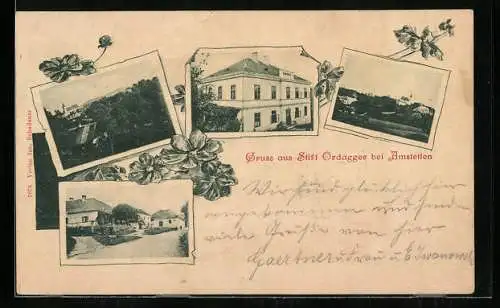 Gruss aus Stift Ordagger bei Amstetten
Wir sind glücklich hier
angekommen und senden
viele Grüße von hier
Gaertner u Frau u